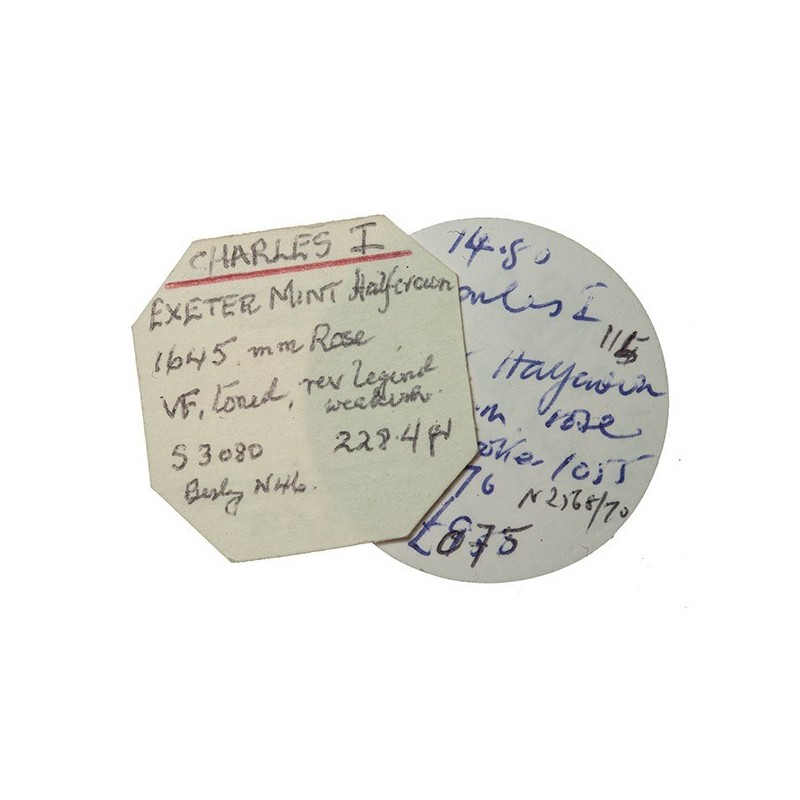 CHARLES I
EXETER MINT Halfcrown
1645. mm Rose
VF, toned, rev legend
weakish.
S 3080 228.4 gr
Besly N46.
14.80
arles I
115
Halfcrown
m. rose
1055
76
N 2568/70
£875